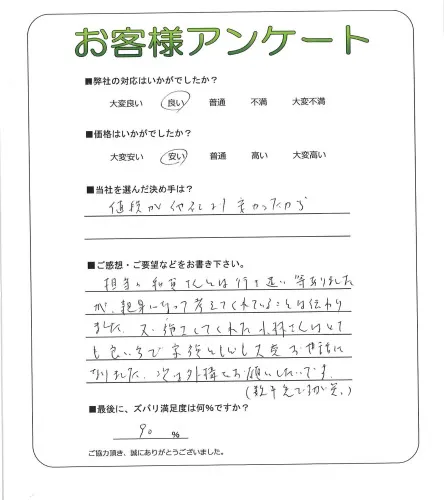 お客様アンケート
■弊社の対応はいかがでしたか？
大変良い 良い 普通 不満 大変不満
■価格はいかがでしたか？
大変安い 安い 普通 高い 大変高い
■当社を選んだ決め手は？
値段が他社より安かったから
■ご感想・ご要望などをお書き下さい。
担当の和賀さんとは行き違い等ありました
が、親身になって考えてくれていることは伝わり
ました。又、施工してくれた小林さんはとて
も良い方で家族ともども大変お世話に
なりました。次は外構でお願いしたいです。
■最後に、ズバリ満足度は何％ですか？
90 %
ご協力頂き、誠にありがとうございました。